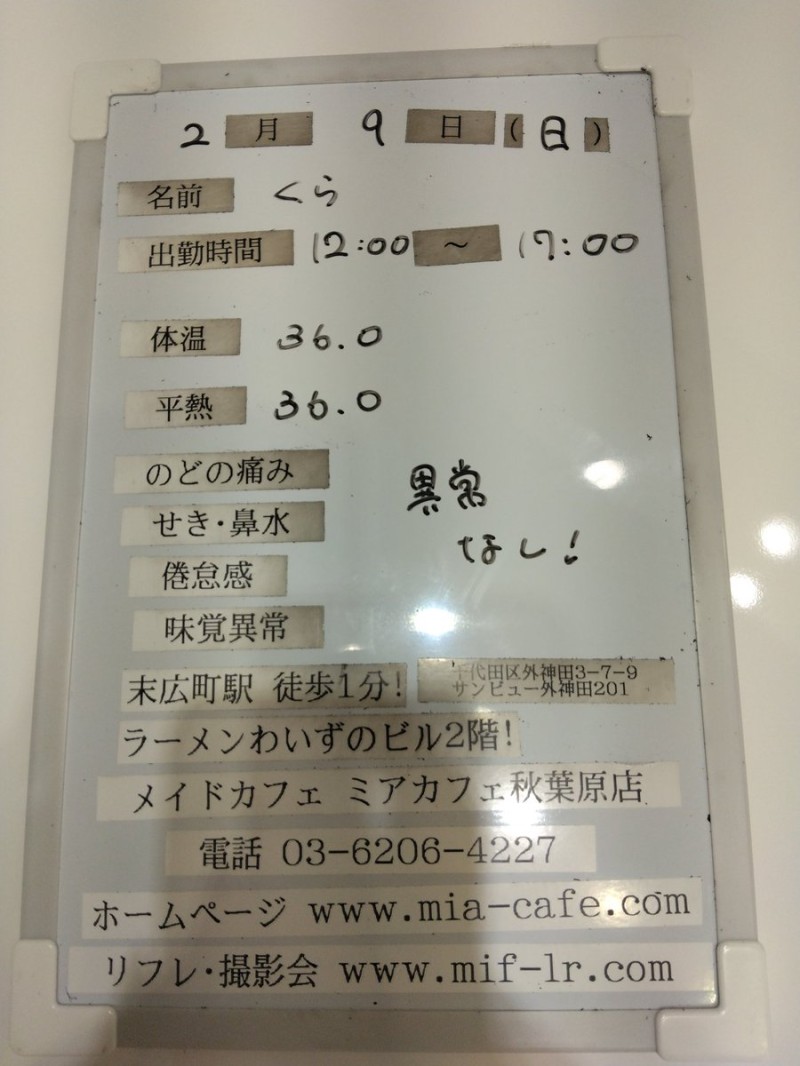 2月 9日(日)
名前 くら
出勤時間 12:00 ～ 17:00
体温 36.0
平熱 36.0
のどの痛み
せき・鼻水
倦怠感
味覚異常
異常
なし!
末広町駅 徒歩1分!
千代田区外神田3-7-9
サンビュー外神田201
ラーメンわいずのビル2階!
メイドカフェ ミアカフェ秋葉原店
電話 03-6206-4227
ホームページ www.mia-cafe.com
リフレ・撮影会 www.mif-lr.com